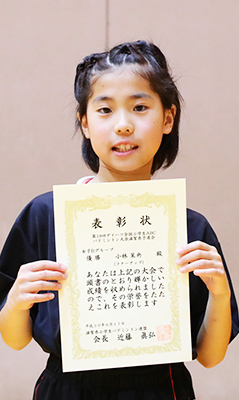 表彰状
第19回ダイハツ全国小学生ABC
バドミントン大会滋賀県予選会
女子Bグループ
優勝 小林 殿
あなたは上記の大会で
頭書のとおり輝かしい
成績を収められました
ので、その栄誉をたた
えこれを表彰します
滋賀県小学生バドミントン連盟
会長 近藤 眞弘